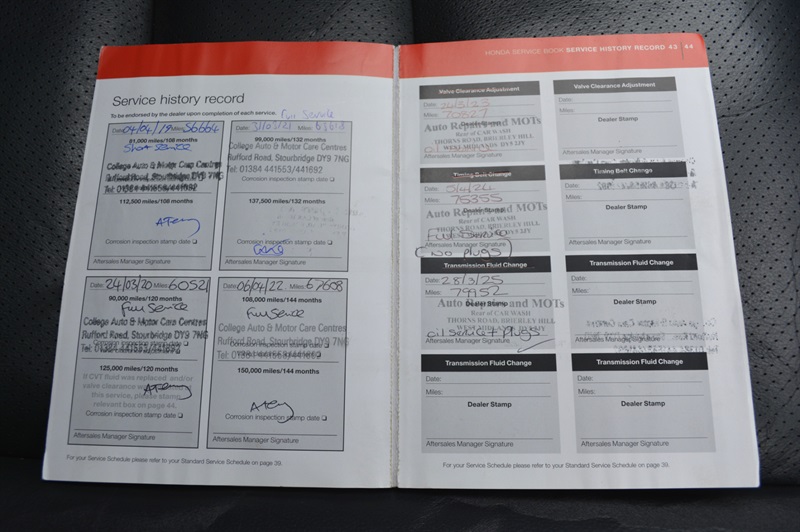 HONDA SERVICE BOOK SERVICE HISTORY RECORD 43 44
Service history record
To be endorsed by the dealer upon completion of each service.
Full Service
Date: 04/04/19 Miles: 56664
81,000 miles/108 months
Short Service
College Auto & Motor Care Centres
Rufford Road, Stourbridge DY9 7NG
Tel: 01384 441553/441692
112,500 miles/108 months
Corrosion inspection stamp date
Aftersales Manager Signature
Date: 31/03/21 Miles:
99,000 miles/132 months
College Auto & Motor Care Centres
Rufford Road, Stourbridge DY9 7NG
Tel: 01384 441553/441692
Corrosion inspection stamp date
137,500 miles/132 months
Corrosion inspection stamp date
Aftersales Manager Signature
24/03/20 Miles: 60521
90,000 miles/120 months
Full Service
College Auto & Motor Care Centres
Rufford Road, Stourbridge DY9 7NG
Tel: 01384 441553/441692
125,000 miles/120 months
If CVT fluid was replaced and/or
valve clearance
this service, please stamp
relevant box on page 44.
Corrosion inspection stamp date
Aftersales Manager Signature
06/04/22 Miles: 67608
108,000 miles/144 months
Full Service
College Auto & Motor Care Centres
Rufford Road, Stourbridge DY9 7NG
Tel: 01384 441553/441692
Corrosion inspection stamp date
150,000 miles/144 months
Corrosion inspection stamp date
Aftersales Manager Signature
For your Service Schedule please refer to your Standard Service Schedule on page 39.
Valve Clearance Adjustment
Date: 24/3/23
Miles: 70827
Dealer Stamp
Auto Repairs and MOTs
Rear of CAR WASH
THORNS ROAD, BRIERLEY HILL
WEST MIDLANDS DY5 2JY
Aftersales Manager Signature
Valve Clearance Adjustment
Date:
Miles:
Dealer Stamp
Aftersales Manager Signature
Timing Belt Change
5/4/24
75355
Auto Repairs and MOTs
Rear of CAR WASH
THORNS ROAD, BRIERLEY HILL
WEST MIDLANDS DY5 2JY
Full Service
Aftersales Manager Signature
(No Plugs)
Timing Belt Change
Dealer Stamp
Aftersales Manager Signature
Transmission Fluid Change
28/3/25
Miles: 79952
Dealer Stamp
Auto Repairs and MOTs
Rear of CAR WASH
THORNS ROAD, BRIERLEY HILL
WEST MIDLANDS DY5 2JY
oil service + plugs
Aftersales Manager Signature
Transmission Fluid Change
Date:
Miles:
Dealer Stamp
Aftersales Manager Signature
Transmission Fluid Change
Date:
Miles:
Dealer Stamp
Aftersales Manager Signature
Transmission Fluid Change
Date:
Miles:
Dealer Stamp
Aftersales Manager Signature
For your Service Schedule please refer to your Standard Service Schedule on page 39.